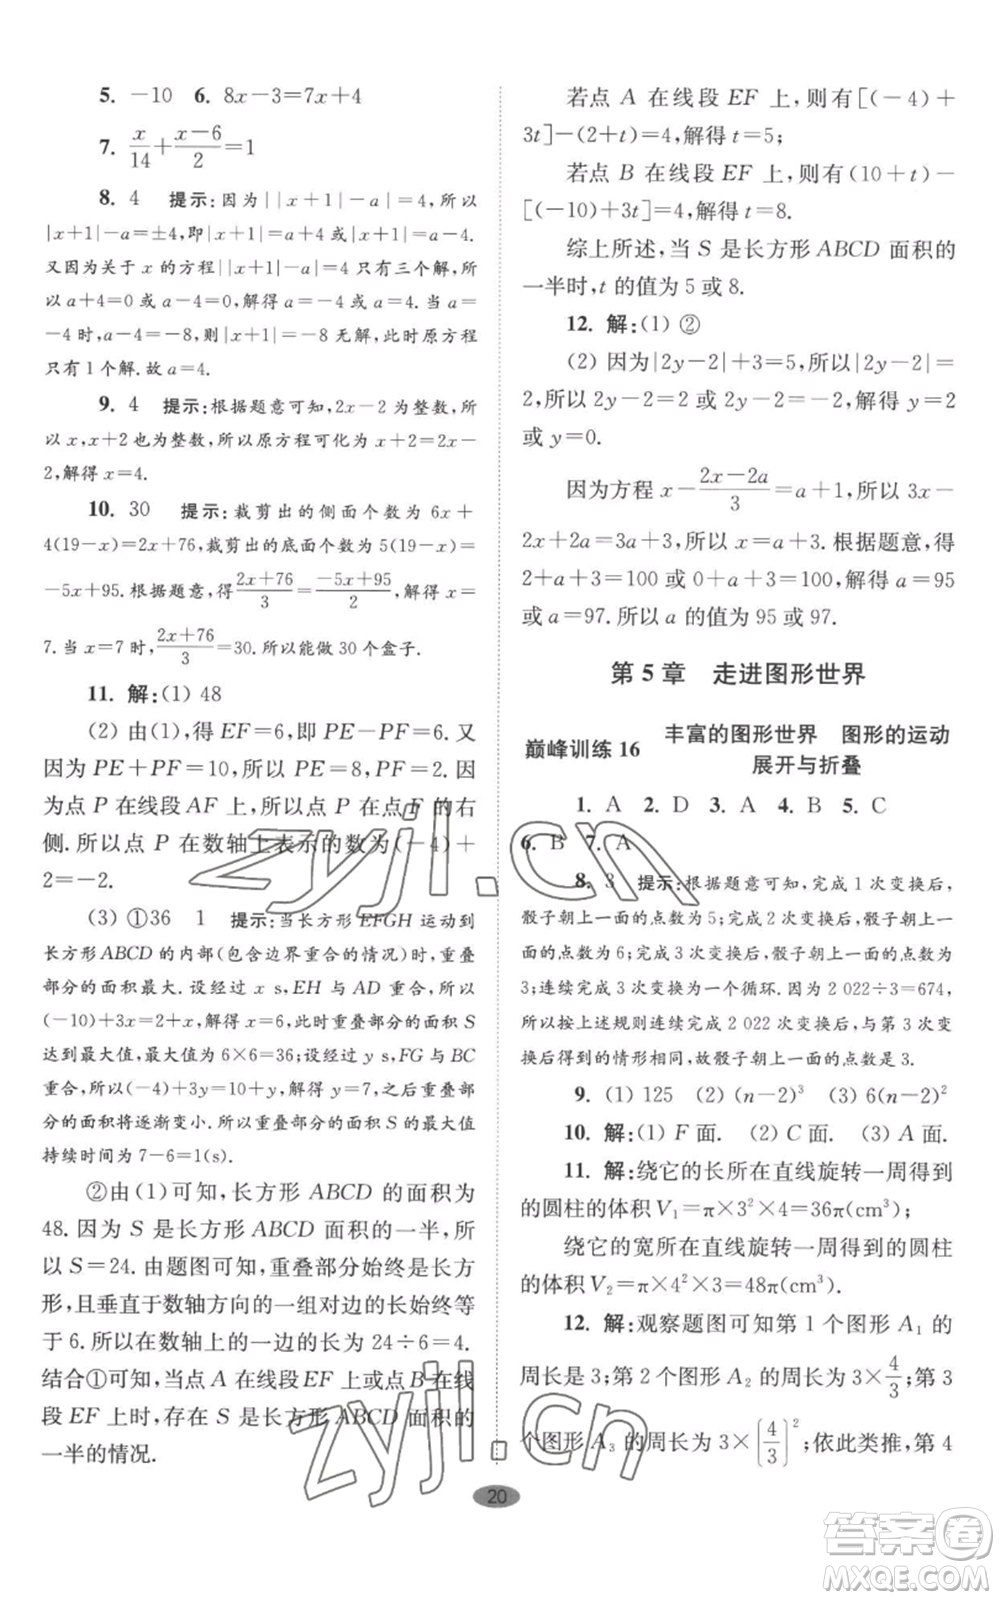 5. －10　6. 8x－3＝7x＋4
7. x/14＋(x－6)/2＝1
8. 4　提示:因为||x＋1|－a|＝4,所以
|x＋1|－a＝±4,即|x＋1|＝a＋4或|x＋1|＝a－4.
又因为关于 x 的方程||x＋1|－a|＝4 只有三个解,所
以 a＋4＝0 或 a－4＝0,解得 a＝－4 或 a＝4. 当 a＝
－4 时,a－4＝－8,则|x＋1|＝－8 无解,此时原方程
只有 1 个解.故 a＝4.
9. 4　提示:根据题意可知,2x－2 为整数,所
以 x,x＋2 也为整数,所以原方程可化为 x＋2＝2x－
2,解得 x＝4.
10. 30　提示:裁剪出的侧面个数为 6x＋
4(19－x)＝2x＋76,裁剪出的底面个数为 5(19－x)＝
－5x＋95.根据题意,得(2x＋76)/3＝(－5x＋95)/2,解得 x＝
7.当 x＝7 时,(2x＋76)/3＝30.所以能做 30 个盒子.
11. 解:(1) 48
(2) 由(1),得 EF＝6,即 PE－PF＝6. 又
因为 PE＋PF＝10,所以 PF＝2. 因
为点 P 在线段 AF 上,所以点 P 在点 F 的右
侧.所以点 P 在数轴上表示的数为(－4)＋
2＝－2.
(3) ①36　1　提示:当长方形 EFGH 运动到
长方形 ABCD 的内部(包含边界重合的情况)时,重叠
部分的面积最大. 设经过 x s,EH 与 AD 重合,所以
(－10)＋3x＝2＋x,解得 x＝6,此时重叠部分的面积 S
达到最大值,最大值为 6×6＝36;设经过 y s,FG 与 BC
重合,所以(－4)＋3y＝10＋y,解得 y＝7,之后重叠部
分的面积将逐渐变小.所以重叠部分的面积 S 的最大值
持续时间为 7－6＝1(s).
②由(1)可知,长方形 ABCD 的面积为
48. 因为 S 是长方形 ABCD 面积的一半,所
以 S＝24. 由题图可知,重叠部分始终是长方
形,且垂直于数轴方向的一组对边的长始终等
于 6.所以在数轴上的一边的长为 24÷6＝4.
结合①可知,当点 A 在线段 EF 上或点 B 在线
段 EF 上时,存在 S 是长方形 ABCD 面积的
一半的情况.
若点 A 在线段 EF 上,则有[(－4)＋
3t]－(2＋t)＝4,解得 t＝5;
若点 B 在线段 EF 上,则有(10＋t)－
[(－10)＋3t]＝4,解得 t＝8.
综上所述,当 S 是长方形 ABCD 面积的
一半时,t 的值为 5 或 8.
12. 解:(1) ②
(2) 因为|2y－2|＋3＝5,所以|2y－2|＝
2,所以 2y－2＝2 或 2y－2＝－2,解得 y＝2
或 y＝0.
因为方程 x－(2x－2a)/3＝a＋1,所以 3x－
2x＋2a＝3a＋3,所以 x＝a＋3.根据题意,得
2＋a＋3＝100 或 0＋a＋3＝100,解得 a＝95
或 a＝97.所以 a 的值为 95 或 97.
第 5 章　走进图形世界
巅峰训练 16　丰富的图形世界　图形的运动
展开与折叠
1. A　2. D　3. A　4. B　5. C
6. B　7. A
8. 3　提示:根据题意可知,完成 1 次变换后,
骰子朝上一面的点数为 5;完成 2 次变换后,骰子朝上
一面的点数为 6;完成 3 次变换后,骰子朝上一面的点数为
3;连续完成 3 次变换为一个循环. 因为 2 022÷3＝674,
所以按上述规则连续完成 2 022 次变换后,与第 3 次变
换后得到的情形相同,故骰子朝上一面的点数是 3.
9. (1) 125　(2) (n－2)³　(3) 6(n－2)²
10. 解:(1) F 面.　(2) C 面.　(3) A 面.
11. 解:绕它的长所在直线旋转一周得到
的圆柱的体积 V₁＝π×3²×4＝36π(cm³);
绕它的宽所在直线旋转一周得到的圆柱
的体积 V₂＝π×4²×3＝48π(cm³).
12. 解:观察题图可知第 1 个图形 A₁ 的
周长是 3;第 2 个图形 A₂ 的周长为 3×4/3;第 3
个图形 A₃ 的周长为 3×(4/3)²;依此类推,第 4
20
zyjl.cn
zyjl.cn
答案圈
MXQE.COM